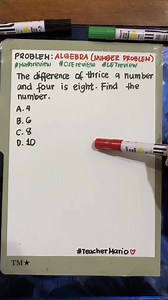 PROBLEM: ALGEBRA (NUMBER PROBLEM)
#Mathreview #CSEreview #LETreview
The difference of thrice a number
and four is eight. Find the
number.
A. 4
B. 6
C. 8
D. 10
#TeacherMario♡
TM★